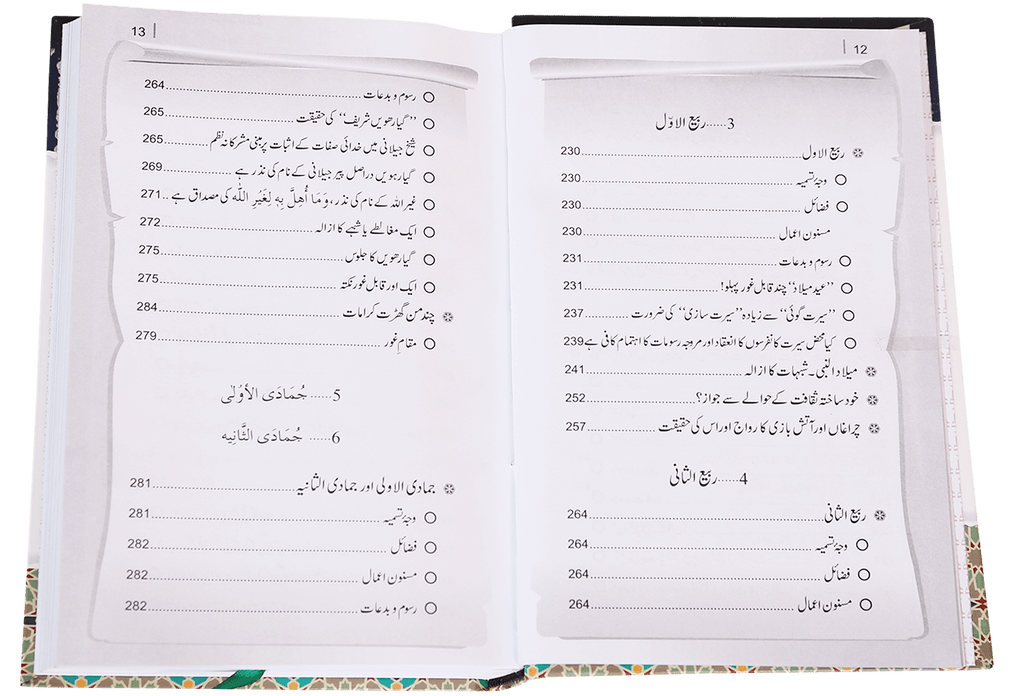 12
3......ربیع الاوّل
ربیع الاول......230
وجۂ تسمیہ......230
فضائل......230
مسنون اعمال......230
رسوم و بدعات......231
’’عید میلاد‘‘ چند قابل غور پہلو!......231
’’سیرت گوئی‘‘ سے زیادہ ’’سیرت سازی‘‘ کی ضرورت......237
کیا محض سیرت کانفرسوں کا انعقاد اور مروجہ رسومات کا اہتمام کافی ہے239
میلاد النبی۔ شبہات کا ازالہ......241
خود ساختہ ثقافت کے حوالے سے جواز؟......252
چراغاں اور آتش بازی کا رواج اور اس کی حقیقت......257
4......ربیع الثانی
ربیع الثانی......264
وجۂ تسمیہ......264
فضائل......264
مسنون اعمال......264
13
رسوم و بدعات......264
’’گیارھویں شریف‘‘ کی حقیقت......265
شیخ جیلانی میں خدائی صفات کے اثبات پر مبنی مشرکانہ نظم......265
گیارہویں دراصل پیر جیلانی کے نام کی نذر ہے......269
غیر اللہ کے نام کی نذر، وَمَا أُهِلَّ بِهٖ لِغَيْرِ اللّٰه کی مصداق ہے..271
ایک مغالطے یا شبہے کا ازالہ......272
گیارھویں کا جلوس......275
ایک اور قابل غور نکتہ......275
چند من گھڑت کرامات......284
مقام غور......279
5......جُمَادَى الأوْلٰى
6......جُمَادَى الثَّانِيه
جمادی الاولی اور جمادی الثانیہ......281
وجۂ تسمیہ......281
فضائل......282
مسنون اعمال......282
رسوم و بدعات......282